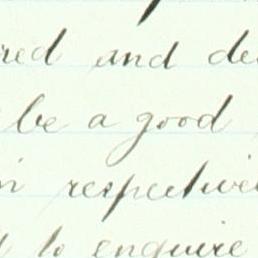 red and de
be a good
in respective
to enquire